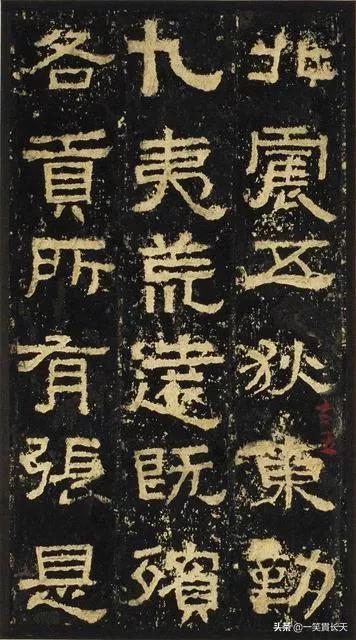 北震五狄東勤
九夷荒遠既殯
各貢所有張是
头条 @一笑貫长天